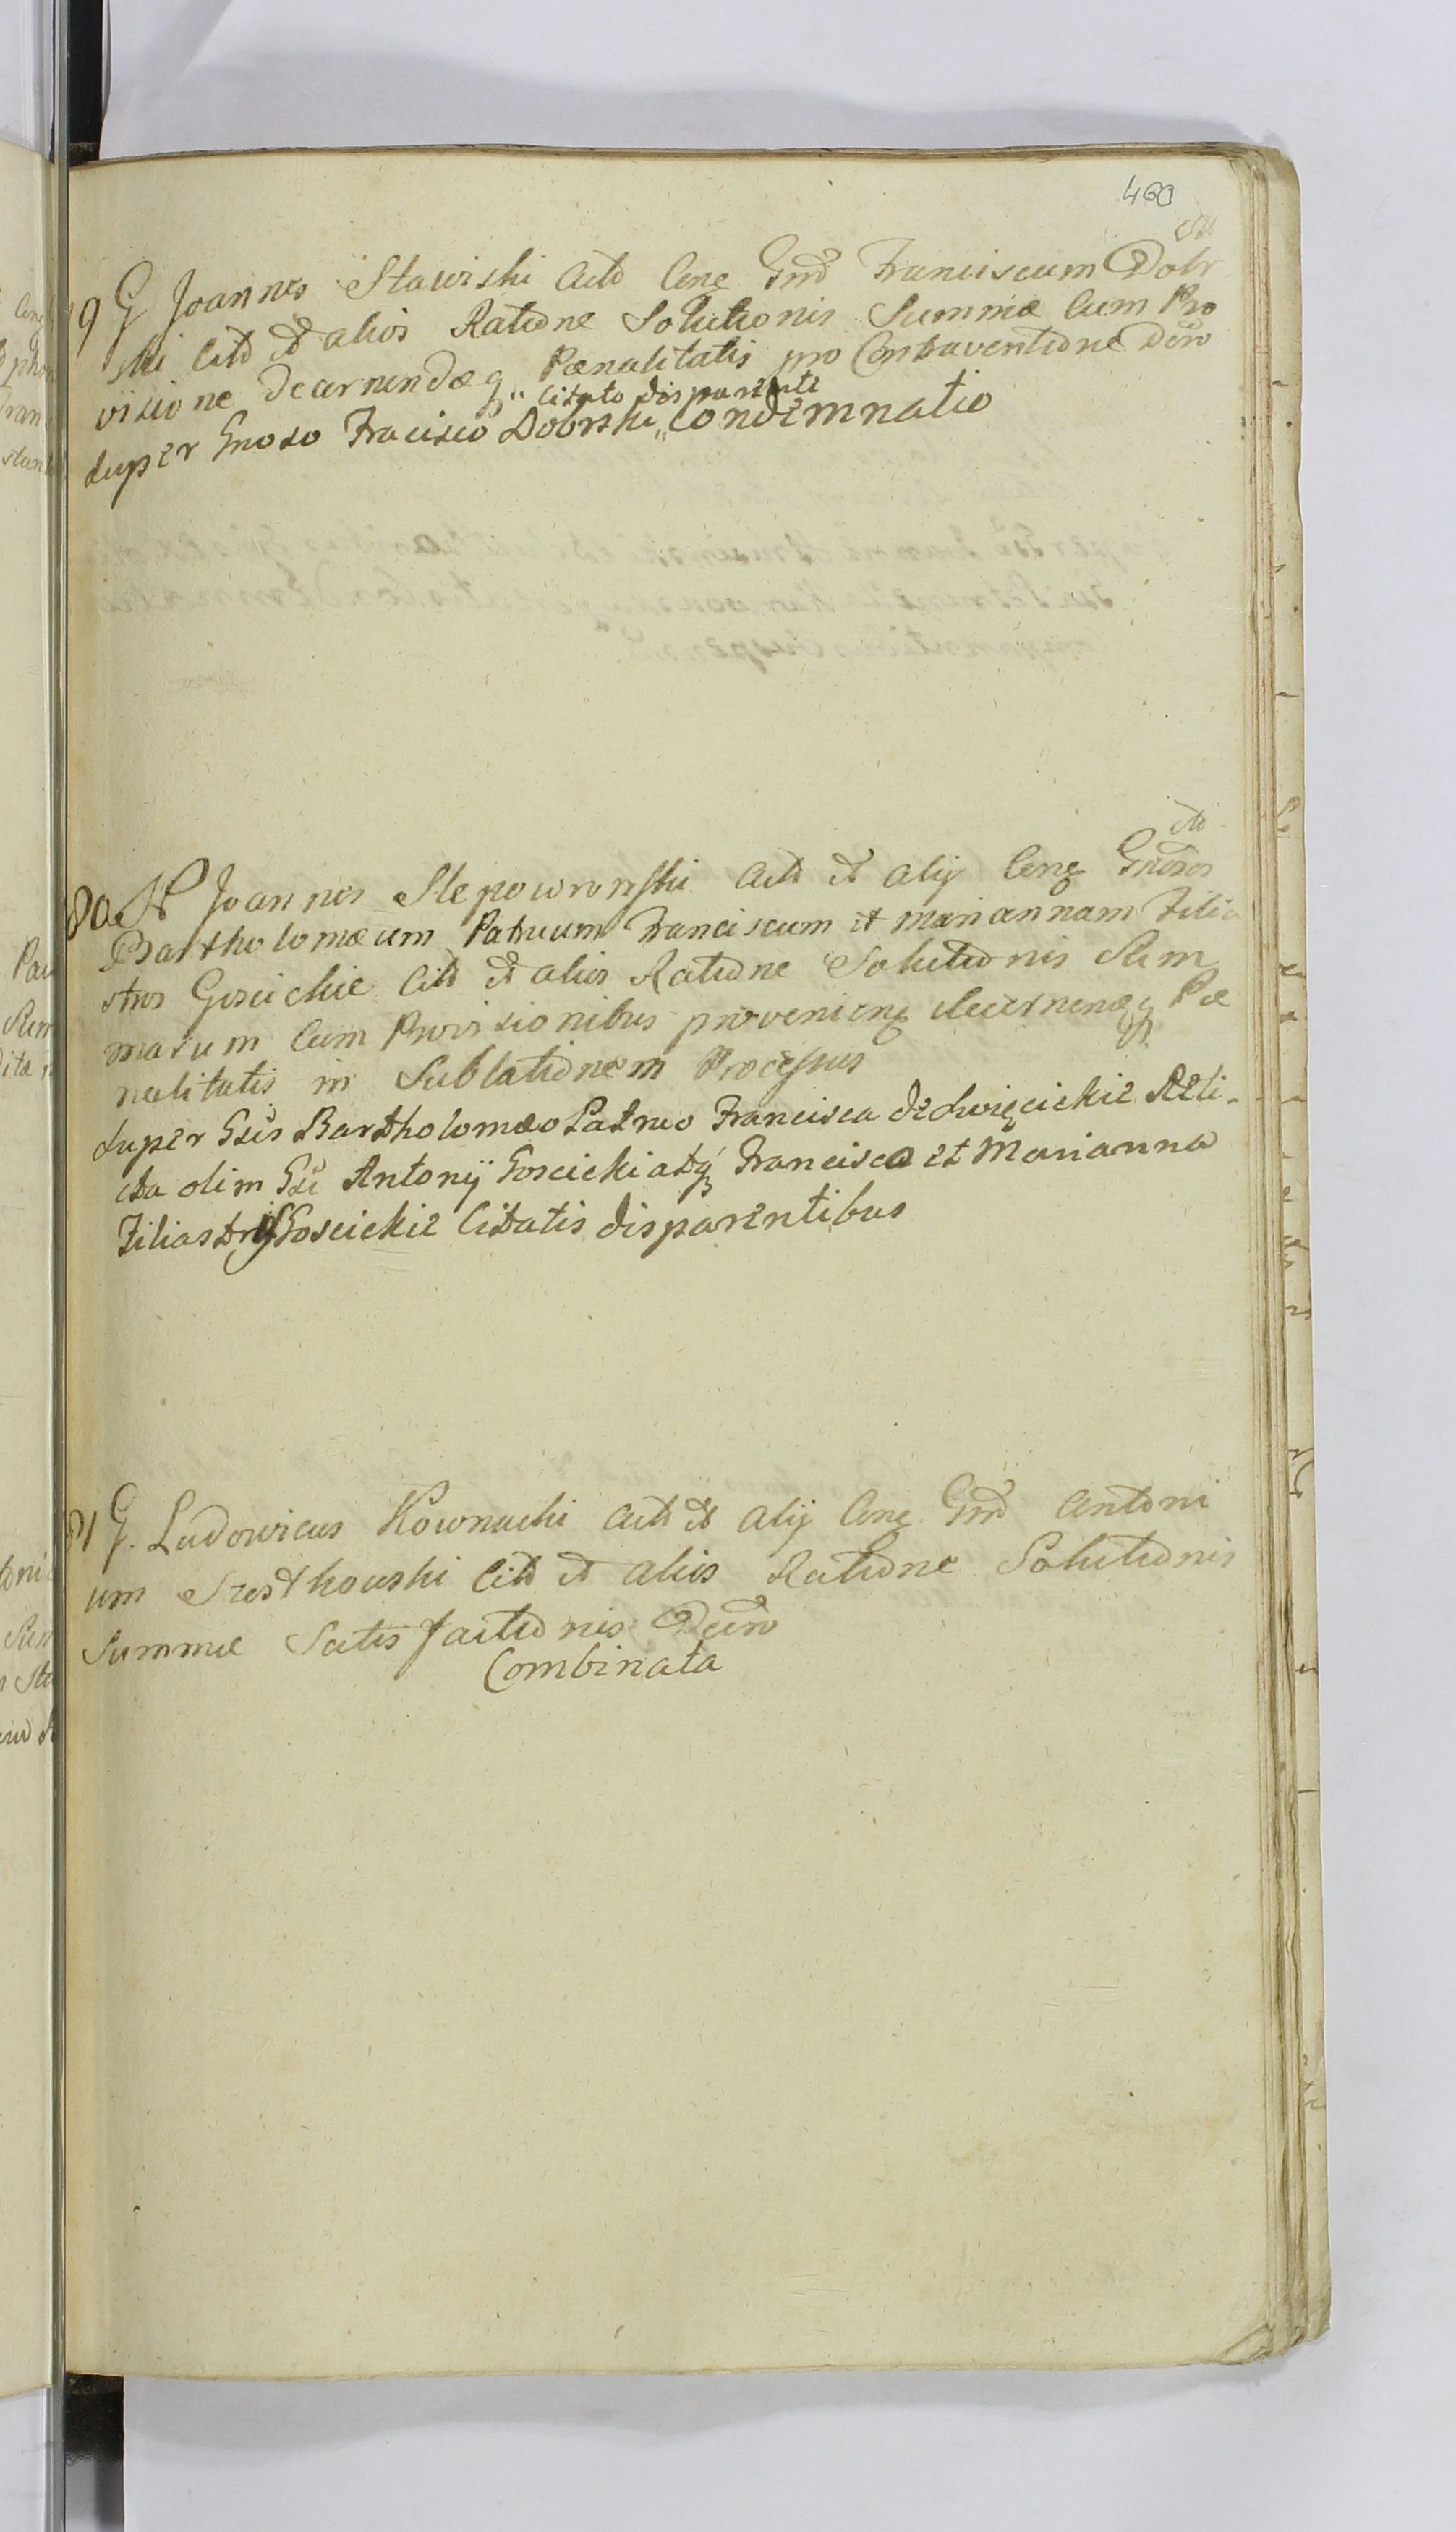 460
79 G Joannes Stawiski Actd Cone Gnd Franciscum Dobr
ski Citd et alios Ratione Solutionis Summæ Cum Pro
visione decernendæq Pænalitatis pro Contraventione Decro
Citato disparente
super Gnoso Fracisco Dobrski „ Condemnatio
80 N Joannes Slepowronski Actd et alij Cone Gnosos
Bartholomæum Patruum Franciscum et Mariannam Filia
stros Goscickie Citd et alios Ratione Solutionis Sum
marum Cum Provisionibus provenienę decernenæq Pæ
nalitatis in Sublationem Processus
super Gsis Bartholomæo Patruo Francisca de Święcickie Reli-
cta olim Gsi Antonij Goscicki atq Francisco et Marianna
Filiastris Goscickie Citatis disparentibus
81 G. Ludovicus Kownacki Actd et alij Cone Gnd Antoni
um Szostkowski Citd et alios Ratione Solutionis
Summæ Satisfactionis Decro
Combinata